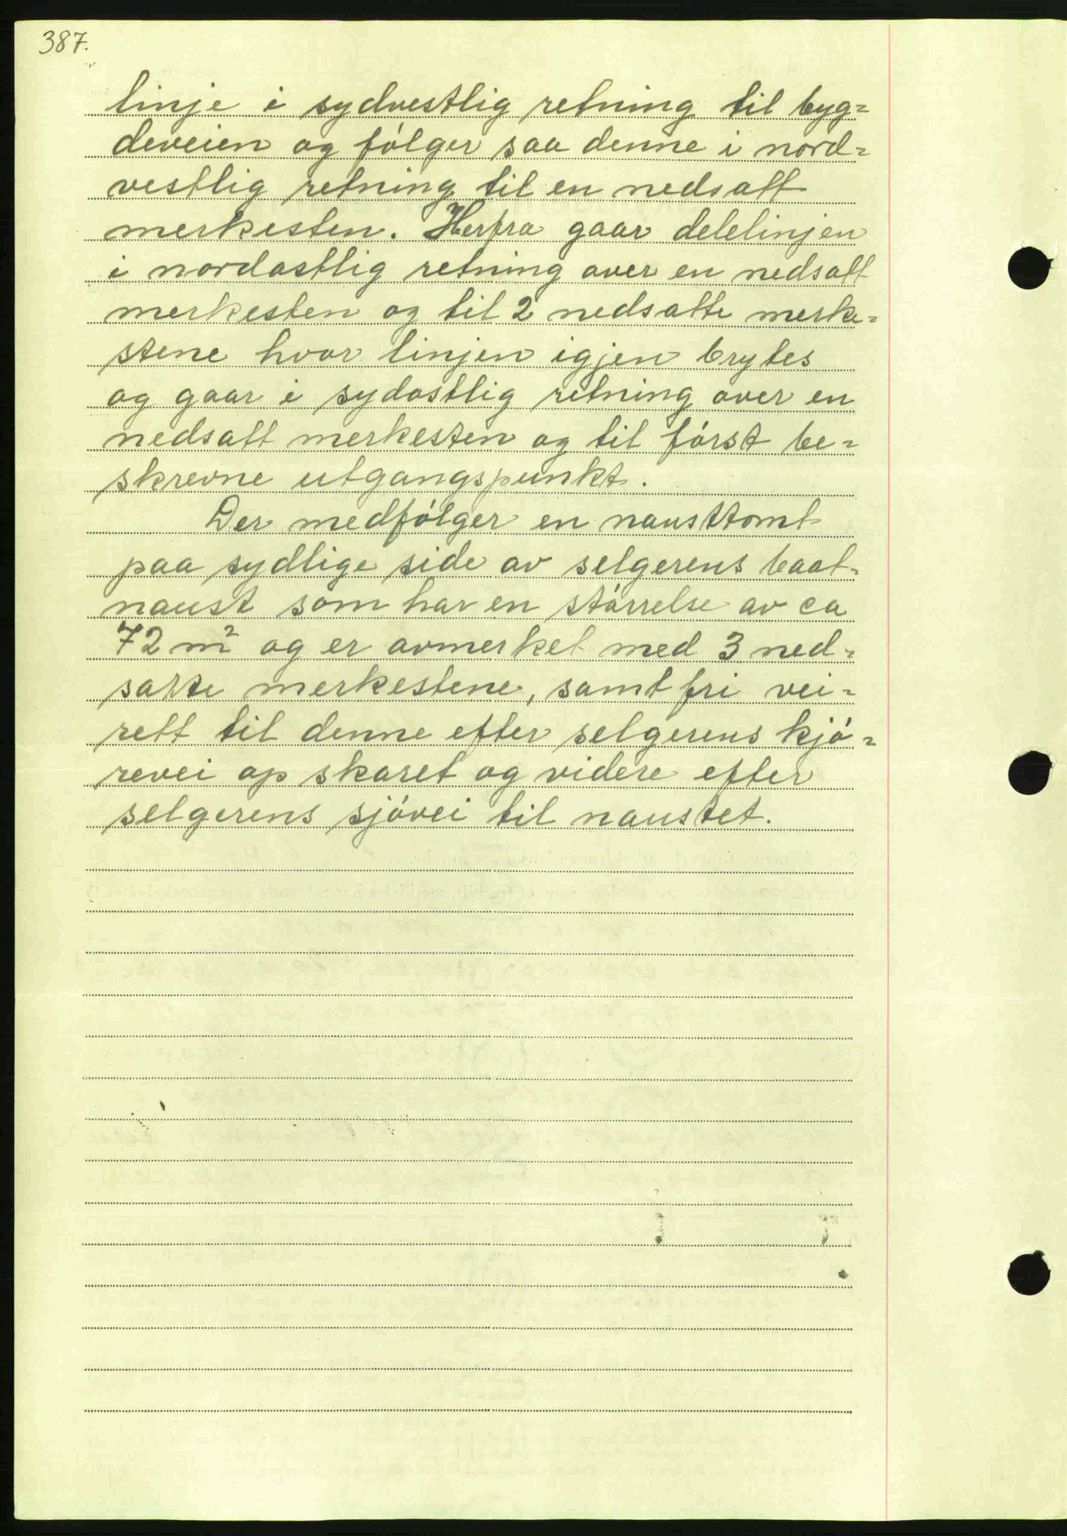 387.
linje i sydvestlig retning til byg=
deveien og følger saa denne i nord=
vestlig retning til en nedsatt
merkesten. Herfra gaar delelinjen
i nordostlig retning over en nedsatt
merkesten og til 2 nedsatte merke=
stene hvor linjen igjen brytes
og gaar i sydostlig retning over en
nedsatt merkesten og til først be=
skrevne utgangspunkt.
Der medfølger en nausttomt
paa sydlige side av selgerens baat-
naust som har en størrelse av ca
72 m² og er avmerket med 3 ned=
satte merkestene, samt fri vei=
rett til denne efter selgerens kjø=
revei op skaret og videre efter
selgerens sjøvei til naustet.